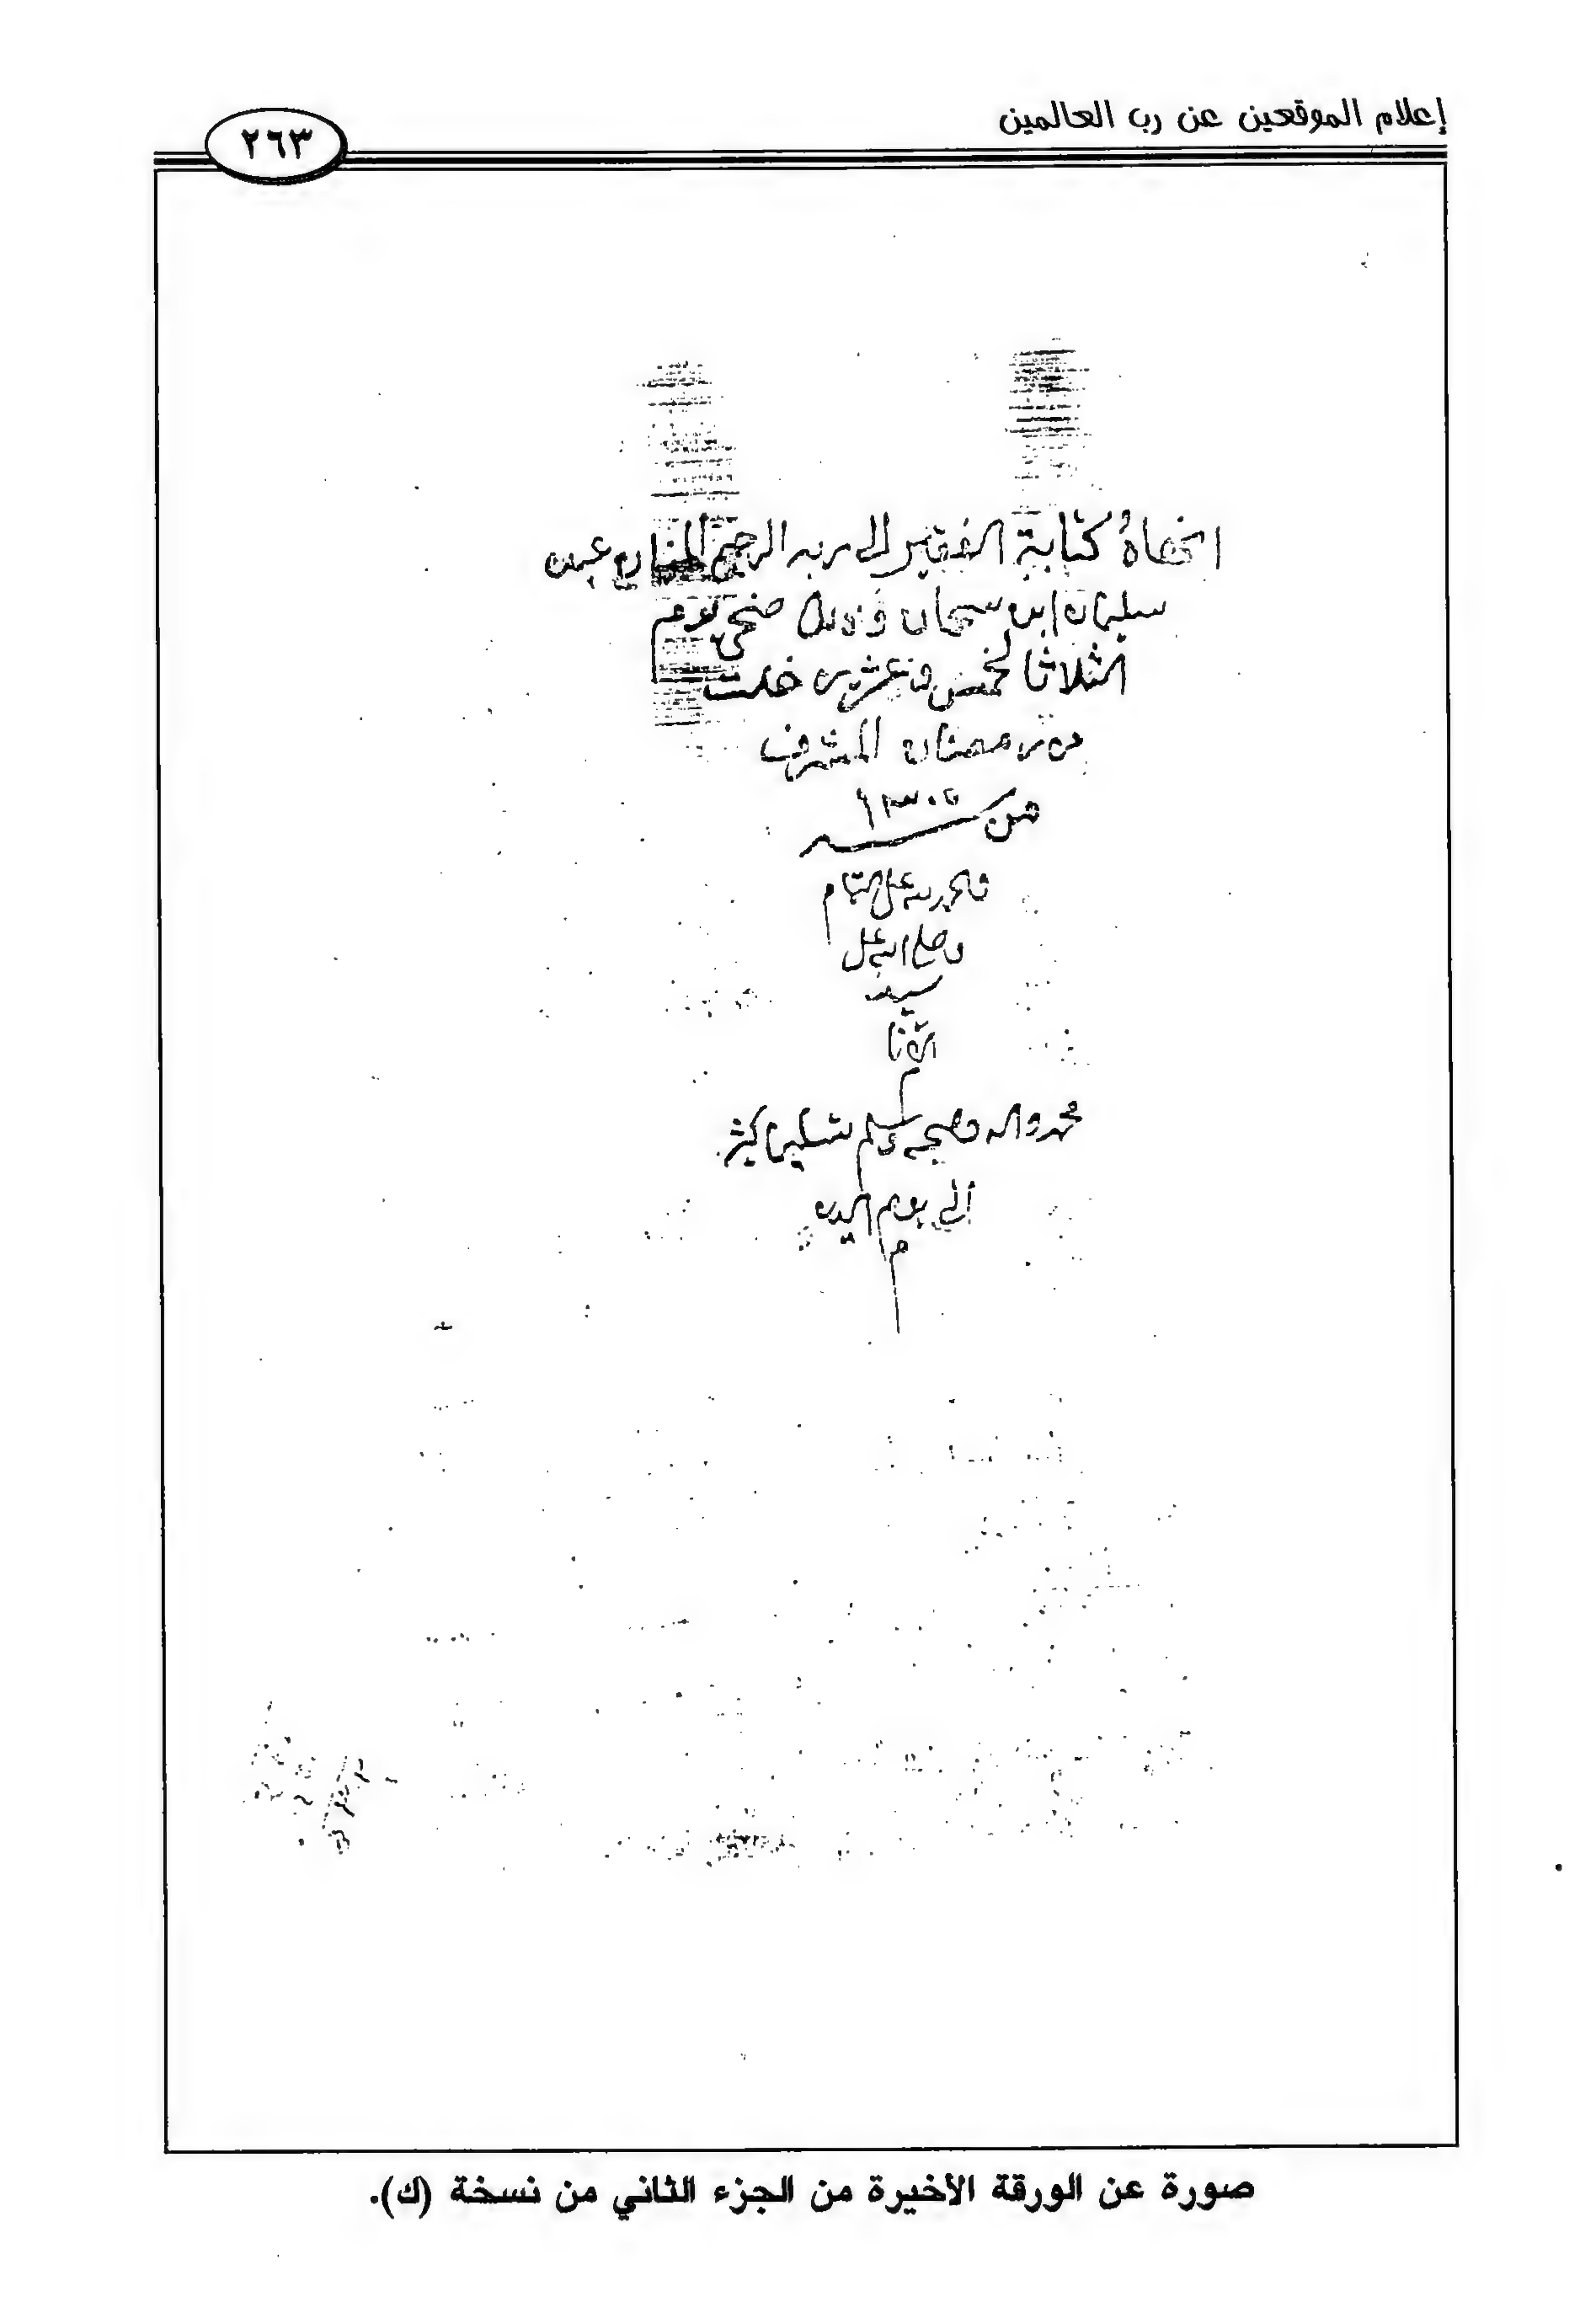 إعلام الموقعين عن رب العالمين
٢٦٣
انهاه كتابة الفقير الى ربه الرحيم المنان عبده
سليمان ابن سحمان وذلك ضحى يوم
الثلاثا لخمس وعشرين خلت
من رمضان المشرف
من سنة
فالحمد لله على التمام
وصلى الله على
سيد
الانام
محمد واله وصحبه وسلم تسليما كثيرا
الى يوم الدين
م
صورة عن الورقة الأخيرة من الجزء الثاني من نسخة (ك).